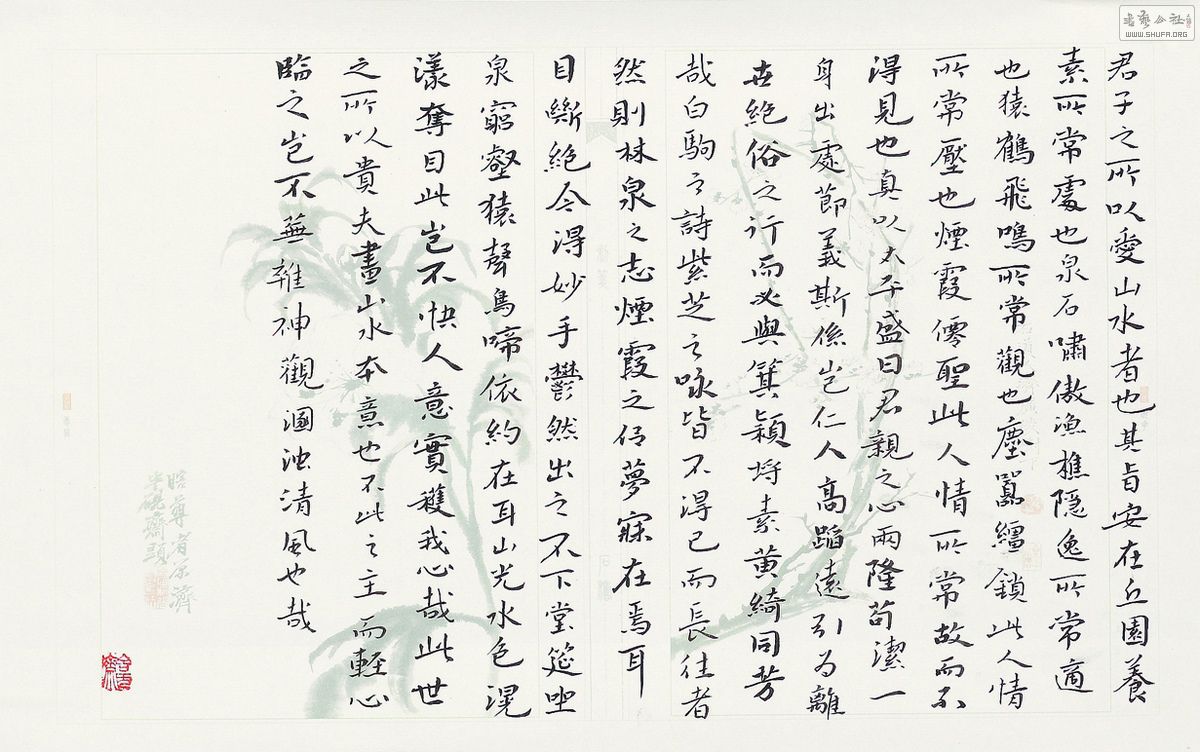 君子之所以愛山水者也其旨安在丘園養
素所常處也泉石嘯傲漁樵隱逸所常適
也猿鶴飛鳴所常觀也塵囂繮鎖此人情
所常壓也煙霞僊聖此人情所常故而不
得見也真以太平盛日君親之心兩隆苟潔一
身出處節義斯係豈仁人高蹈遠引為離
世絕俗之行而必與箕潁埒素黃綺同芳
哉白駒之詩紫芝之咏皆不淂已而長往者
然則林泉之志煙霞之侶夢寐在焉耳
目斷絕今淂妙手鬱然出之不下堂筵坐
泉窮壑猿聲鳥啼依約在耳山光水色滉
漾奪目此豈不快人意實穫我心哉此世
之所以貴夫畫山水本意也不此之主而輕心
臨之豈不蕪雜神觀溷濁清風也哉
書藝公社
WWW.SHUFA.ORG